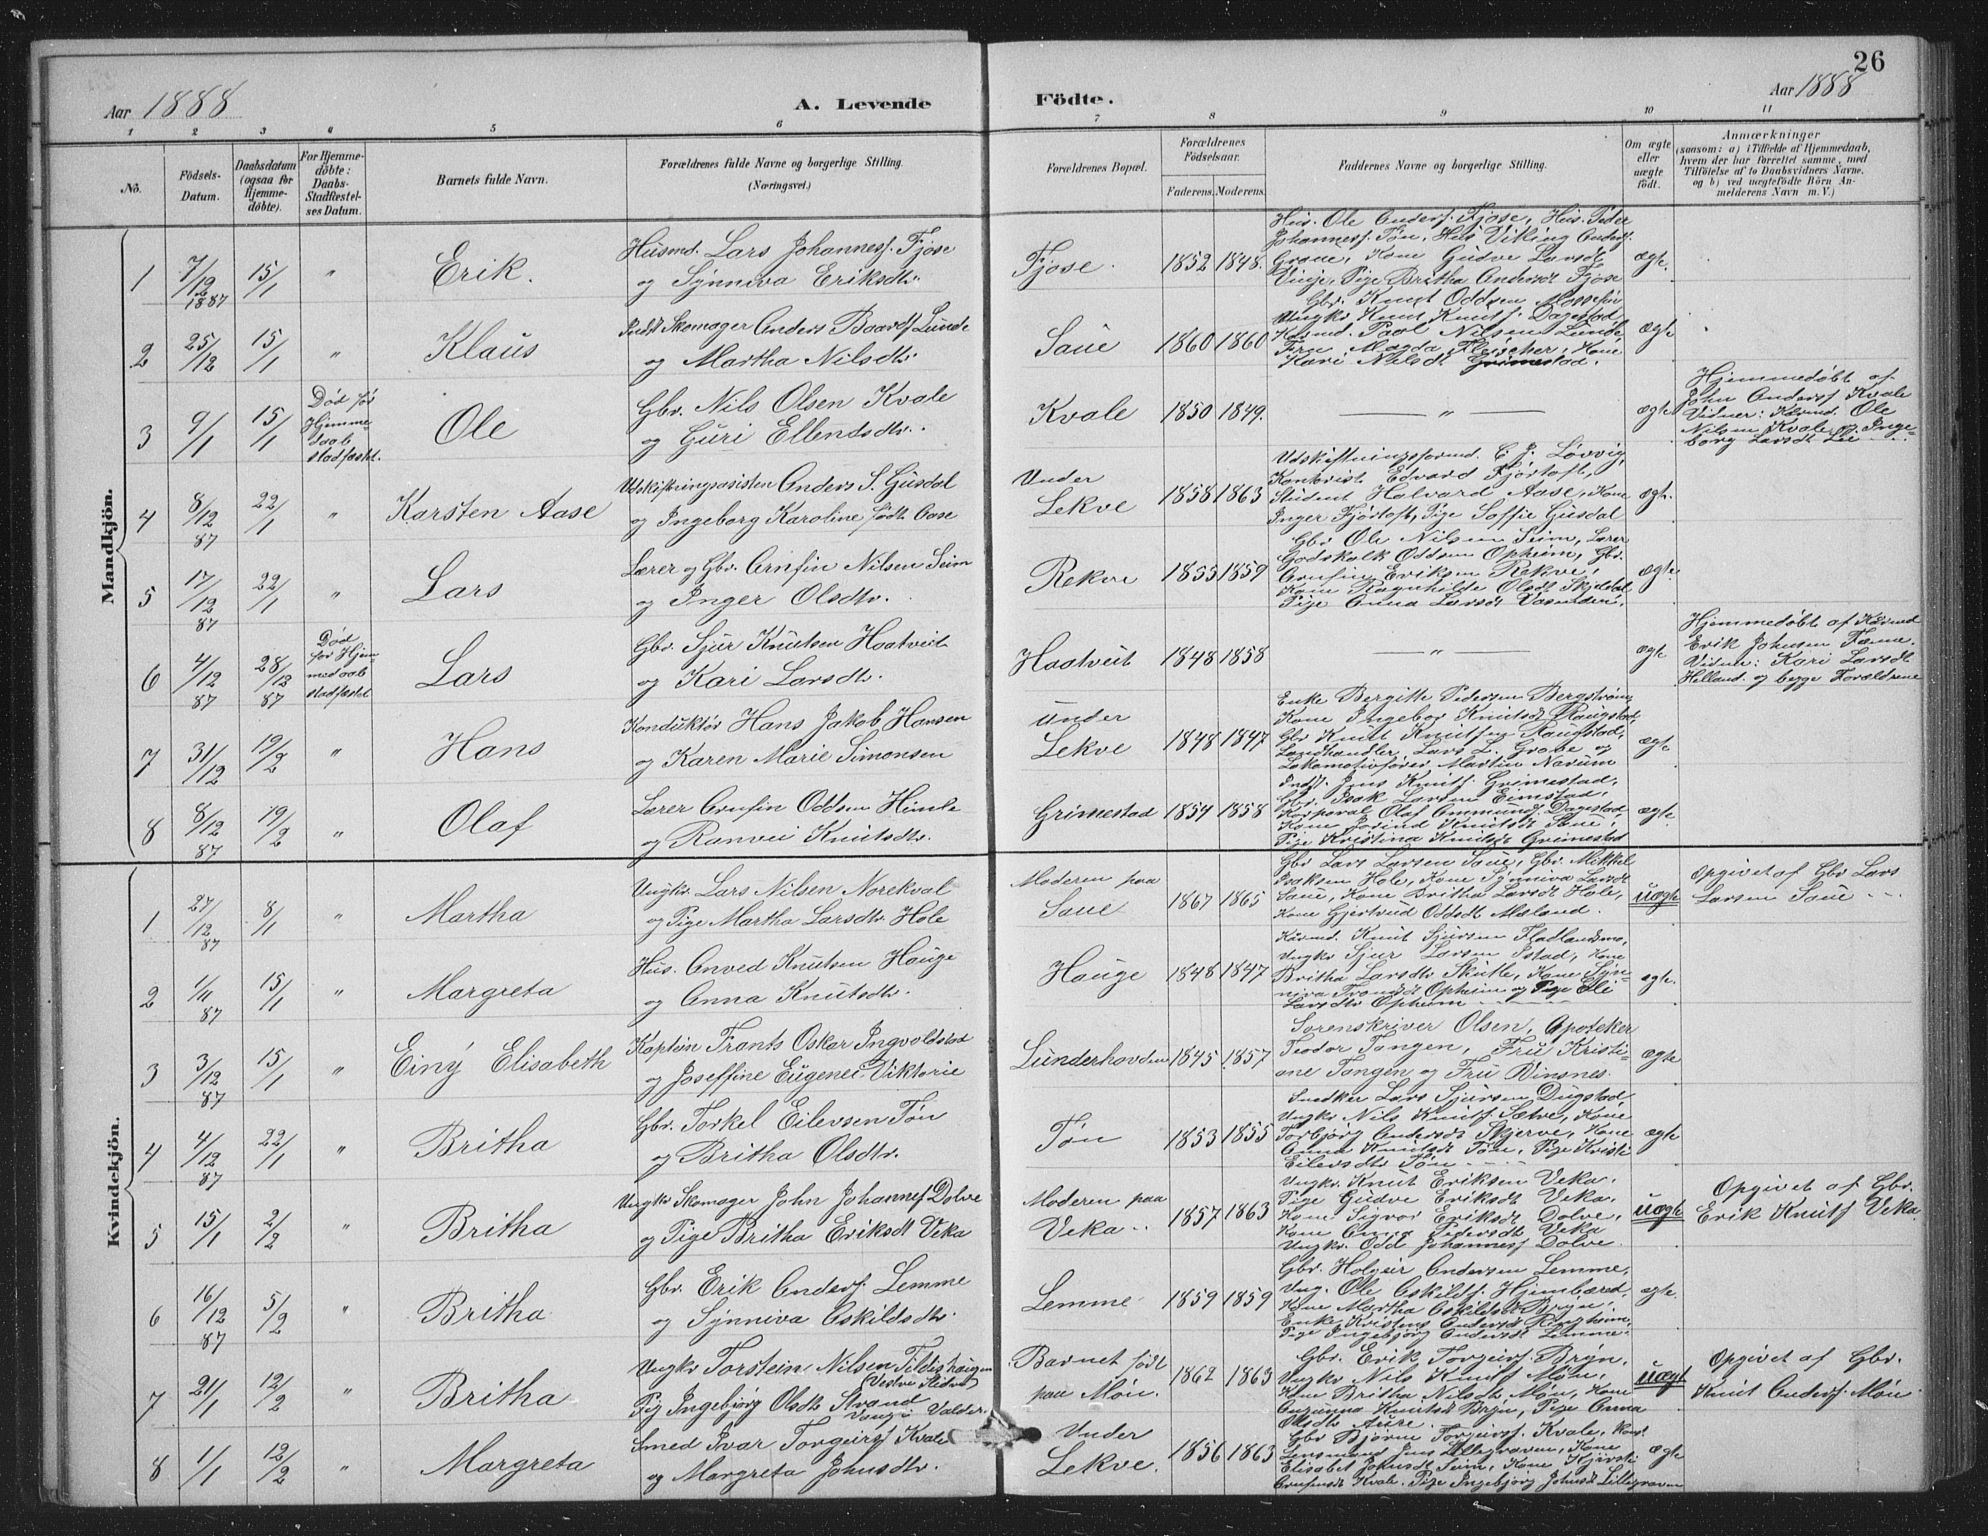 26
Aar 1888
A. Levende
Födte.
Aar 1888
1 2 3 4 5 6 7 8 9 10 11
No.
Födsels-Datum.
Daabsdatum (ogsaa for Hjemme-döbte).
For Hjemme-döbte: Daabs-Stadfæstel-ses Datum.
Barnets fulde Navn.
Forældrenes fulde Navne og borgerlige Stilling.
(Næringsvei.)
Forældrenes Bopæl.
Forældrenes Födselsaar.
Faderens. Moderens.
Faddernes Navne og borgerlige Stilling.
Om ægte eller uægte födt.
Anmærkninger
(saasom: a) i Tilfælde af Hjemmedaab, hvem der har forrettet samme, med Tilföielse af to Daabsvidners Navne, og b) ved uægtefödte Börn An-melderens Navn m. V.)
Mandkjön.
1 7/12 1887 15/1 " Erik.
Husmd. Lars Johannesf. Fjose
og Synniva Eriksdtr.
Fjose. 1852 1848.
Hus. Ole Andersf. Fjose, Hus. Peder
Johannesf. Tøn, Hus Viking Andersf.
Grove, Kone Gudve Larsdt
Vinje, Pige Britha Andersdt Fjose
ægte.
2 25/12 15/1 " Klaus
Indst Skomager Anders Baardsf Lunde
og Martha Nilsdtr.
Saue 1860 1860
Gbr. Knut Oddsen
Ungkr Knut Knutsf. Dagestad
Husmd. Paal Nilsen Lunde
Fru Magda Fleischer, Kone
Kari Nilsdt Grimestad.
ægte.
3 9/1 15/1
Død før
Hjemme
daab
stadfæstet.
Ole
Gbr. Nils Olsen Kvale
og Guri Ellendsdtr.
Kvale 1850 1849.
— " —
ægte
Hjemmedøbt af
John Andersf Kvale
Vidner: Kårmd. Ole
Nilsen Kvale og Inge-
borg Larsdt Lie
4 8/12 87 22/1 " Karsten Aase
Udskiftningsasisten Anders S. Gusdal
og Ingeborg Karoline født Aase
Under
Lekve 1858 1863
Udskiftningsformd. E. J. Løvvig,
Kontorist Edvard Fjørtoft,
Student Halvard Aase, Kone
Inger Fjørtoft, Pige Soffie Gusdal
ægte.
5 17/12 87 22/1 " Lars
Lærer og Gbr. Arnfin Nilsen Seim
og Inger Olsdtr.
Rekve 1855 1859
Gbr Ole Nilsen Seim, Lærer
Godskalk Oddsen Opheim, Gbr.
Arnfin Eriksen Rekve,
Kone Ragnhilde Olsdt Skjeldal
Pige Anna Larsdt Vasenden,
ægte.
6 4/12 87 28/12 87
Død
før Hjem-
medaab
stadfæstet
Lars
Gbr. Sjur Knutsen Haatveit
og Kari Larsdtr.
Haatveit 1848 1858
— " —
ægte
Hjemmedøbt af Kårmd
Erik Johnsen Fenne.
Vidner: Kari Larsdt
Helland og begge Forældrene
7 31/12 19/2 " Hans
Konduktør Hans Jakob Hansen
og Karen Marie Simonsen
Under
Lekve 1848 1847
Enke Bergitte Pedersen Bergstrøm,
Kone Ingebor Knutsdt Raugstad,
Gbr Knut Knutsen Raugstad,
Landhandler Lars L. Grove og
Lokomotivfører Martin Narum
ægte
8 8/12 87 19/2 " Olaf
Lærer Arnfin Oddsen Himle
og Ranvei Knutsdtr.
Grimestad 1854 1858
Indst. Jens Knutsf. Grimestad,
Gbr. Isak Larsen Eimstad,
Korporal Olaf Ommund. Dagestad
Kone Jorind Knutsdt Saue,
Pige Kristina Knutsdt Grimestad
ægte.
Kvindekjön.
1 27/12 87 8/1 " Martha
Ungkr. Lars Nilsen Norekval
og Pige Martha Larsdtr. Hole
Moderen paa
Saue 1867 1865
Gbr Lars Larsen Saue, Gbr Mikkel
Isaksen Hole, Kone Synniva Larsdt
Saue, Kone Britha Larsdt Hole,
Kone Gjertrud Oddsdt Møland.
uægte
Opgivet af Gbr Lars
Larsen Saue
2 1/11 87 15/1 " Margreta
Hus. Anved Knutsen Hauge
og Anna Knutsdtr.
Hauge 1848 1847
Kårmd. Knut Sjursen Fladlandsmo,
Ungkr Sjur Larsen Istad, Kone
Britha Larsdtr Skutle, Kone Syn-
niva Trondsdt Opheim og Pige Eli
Larsdtr Opheim
ægte.
3 3/12 87 15/1 " Einy Elisabeth
Kaptein Frants Oskar Ingvoldstad
og Joseffine Eugenei Viktorie
Lunderhovden 1845 1857
Sorenskriver Olsen, Apoteker
Teodor Tangen, Fru Kristi-
ane Tangen og Fru Vinsnes.
ægte
4 4/12 87 22/1 " Britha
Gbr. Torkel Eilevsen Tøn
og Britha Olsdtr.
Tøn 1853 1855
Snedker Lars Sjursen Dugstad
Ungkr Nils Knutsf. Sætve, Kone
Torbjørg Andersdt Skjerve, Kone
Anna Knutsdt Tøn, Pige Kristi
Eilevsdtr Tøn
ægte
5 15/1 2/2 " Britha
Ungkr Skomager John Johannesf Dolve
og Pige Britha Eriksdt Veka
Moderen paa
Veka 1857 1863
Ungkr. Knut Eriksen Veka.
Pige Gudve Eriksdt Veka.
Kone Sigvor Eriksdt Dolve,
Kone Anna Pedersdt Veka
Ungkr. Odd Johannesf Dolve.
uægte
Opgivet af Gbr.
Erik Knutsf Veka
6 16/12 87 5/2 " Britha
Gbr. Erik Andersf. Lemme
og Synniva Askildsdtr.
Lemme 1859 1859
Gbr. Holgeir Andersen Lemme,
Ung. Ole Askildsf. Hjembærd,
Kone Martha Askildsdt Bryn,
Enke Kristens Andersdt Ringheim,
Pige Ingebjørg Andersdt Lemme
ægte.
7 21/1 12/2 " Britha
Ungkr Torstein Nilsen Fildeshaugen
(Vestre Slidre)
Pig Ingebjørg Olsdt Strand
Vang i Valder.
Barnet født
paa Møn. 1862 1863
Gbr. Erik Torgeirsf. Bryn,
Ungkr Nils Knutsf Møn,
Kone Britha Nilsdt Møn, Kone
Knutsdt Bryn, Pige Anna
Olsdtr Aure.
uægte
Opgivet af Gbr.
Knut Andersf. Møn
8 1/1 12/2 " Margreta
Smed Ivar Torgeirsf Kvale
og Margreta Johnsdtr.
Under
Lekve. 1856 1863
Gbr Bjørne Torgeirsf. Kvale, Konst.
Lensmand Jens Lillegraven, Kone
Elisabet Johnsdt Seim, Kone Kjersti
Arnfinsdt Kvale, Pige Ingebjørg Johnsdt Lillegraven
ægte